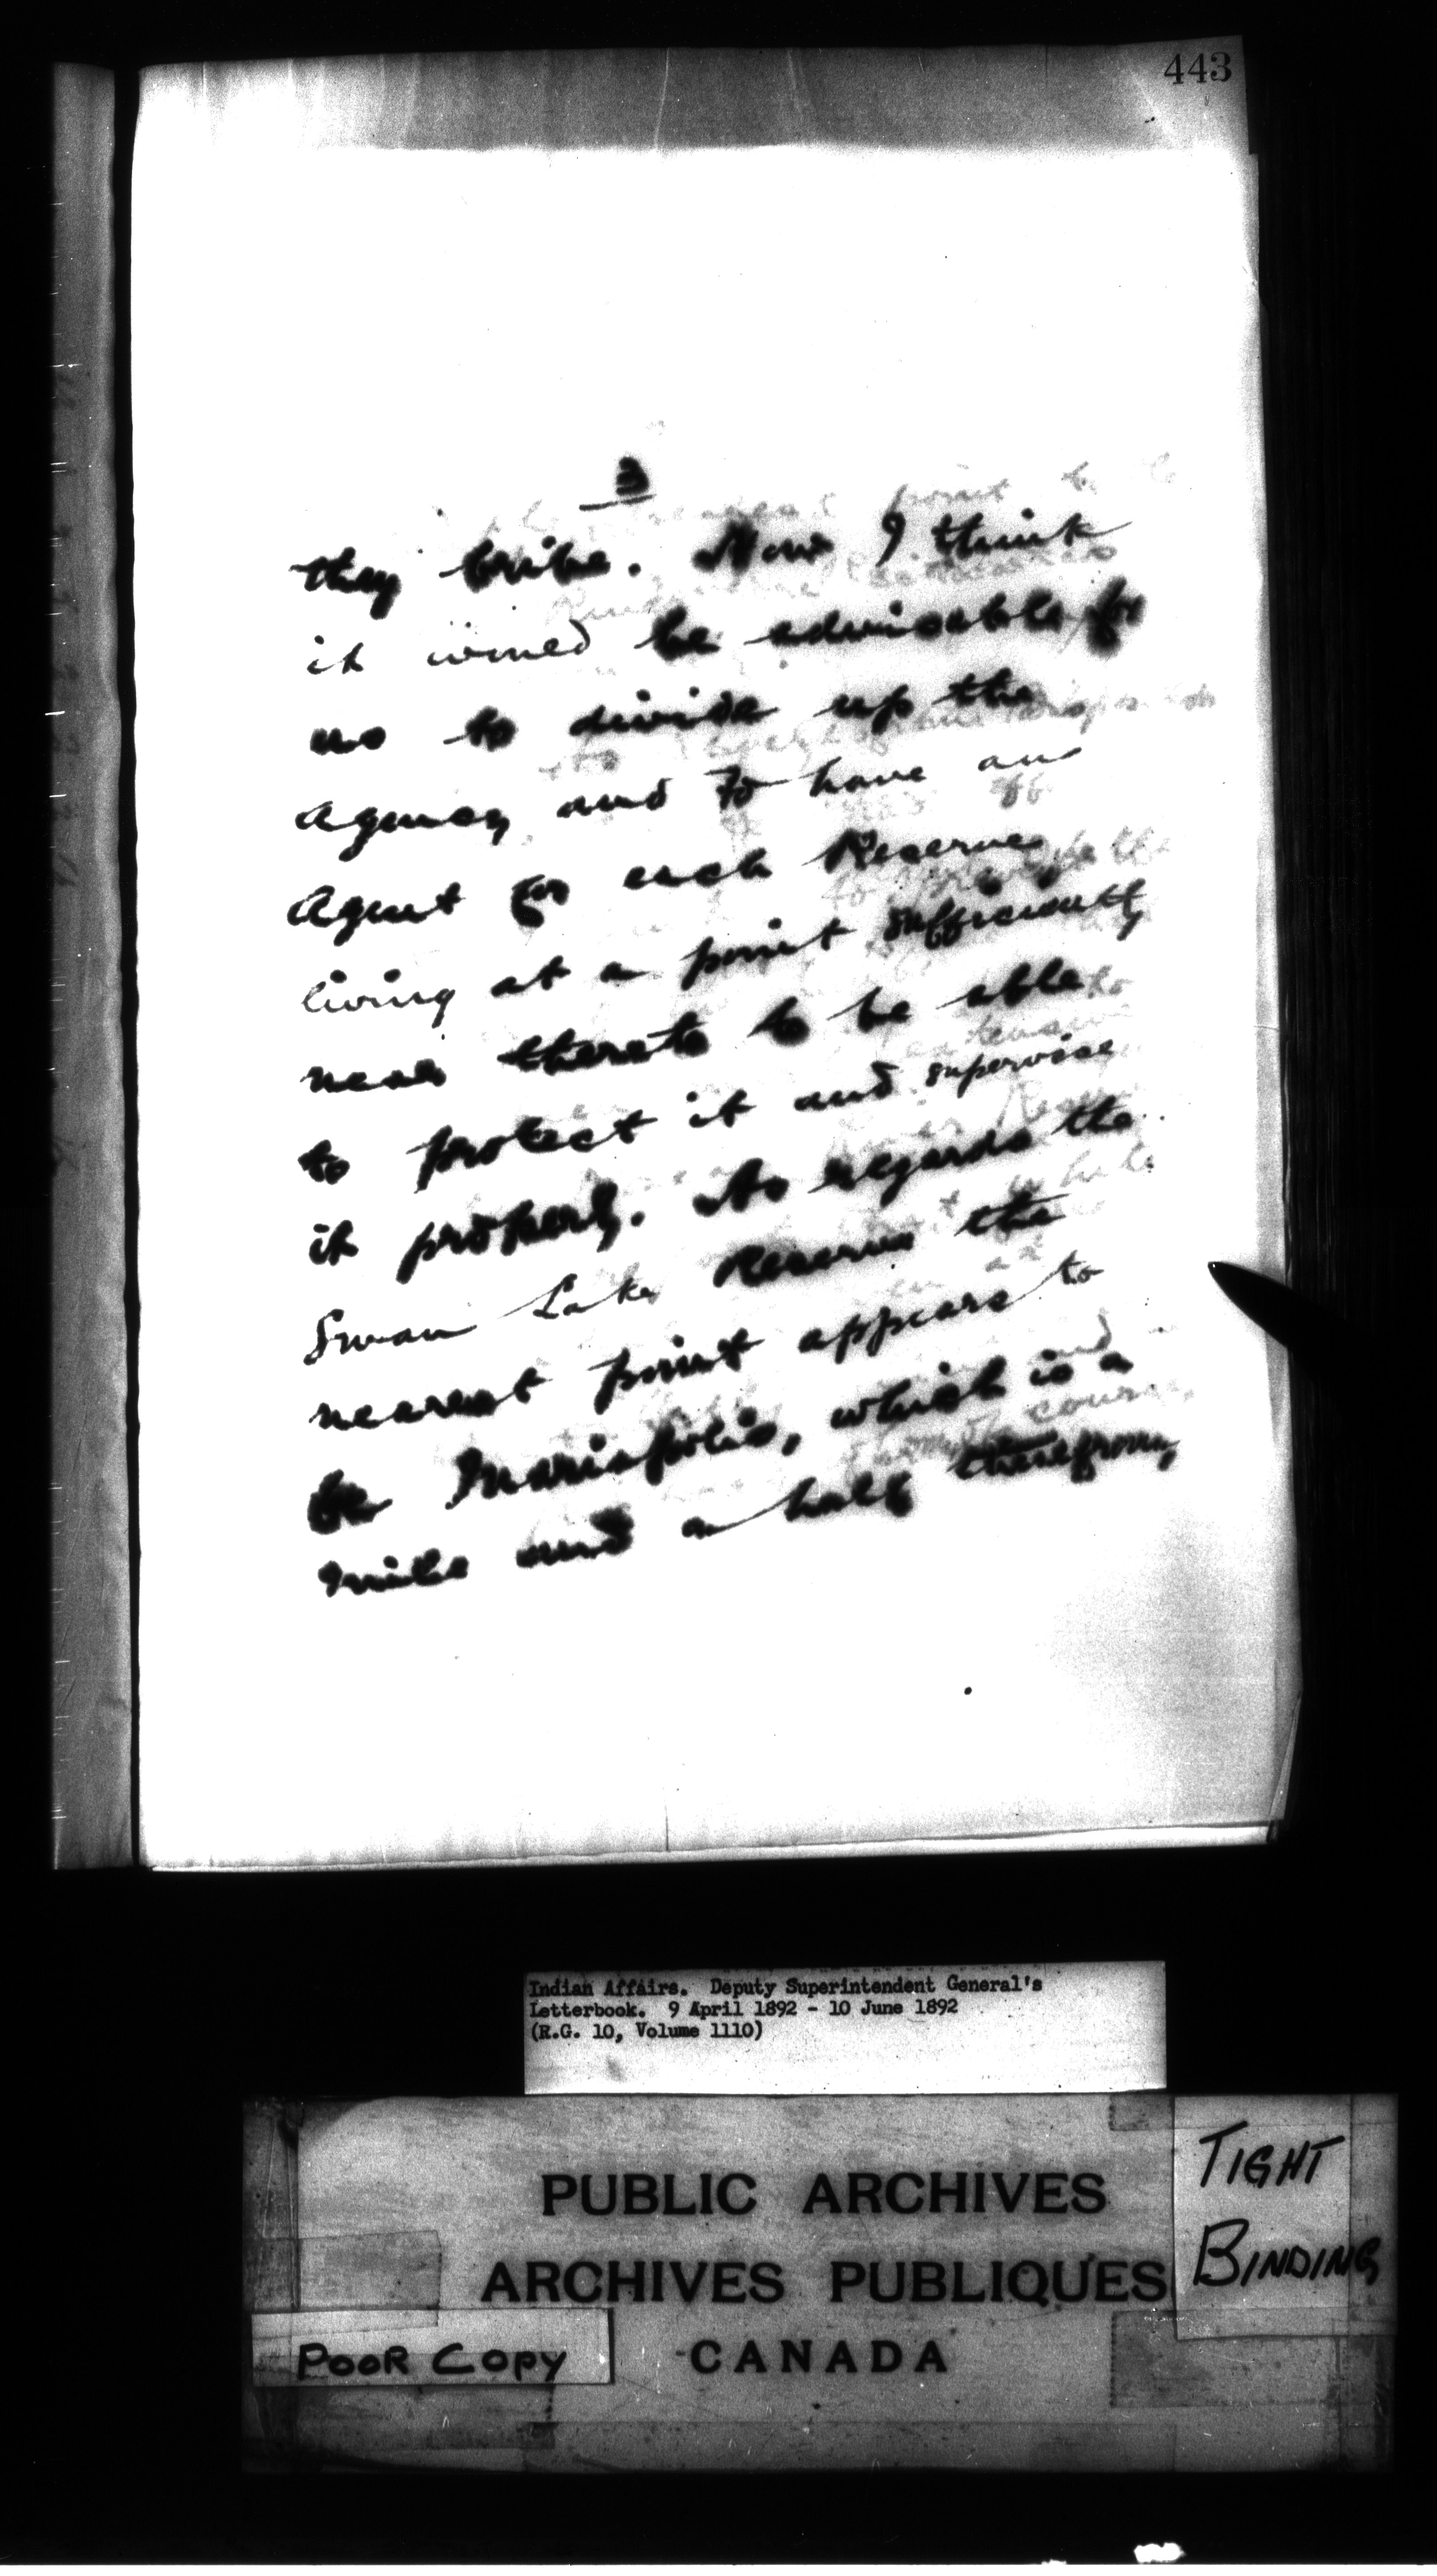 443
3
they bribe. Now I think
it would be advisable for
us to divide up the
Agency and to have an
Agent for each Reserve
living at a point sufficiently
near thereto to be able
to protect it and supervise
it properly. As regards the
Swan Lake Reserve the
nearest point appears to
be Mariapolis, which is a
mile and a half therefrom
Indian Affairs. Deputy Superintendent General's
Letterbook. 9 April 1892 - 10 June 1892
(R.G. 10, Volume 1110)
PUBLIC ARCHIVES
ARCHIVES PUBLIQUES
CANADA
TIGHT
BINDING
POOR COPY